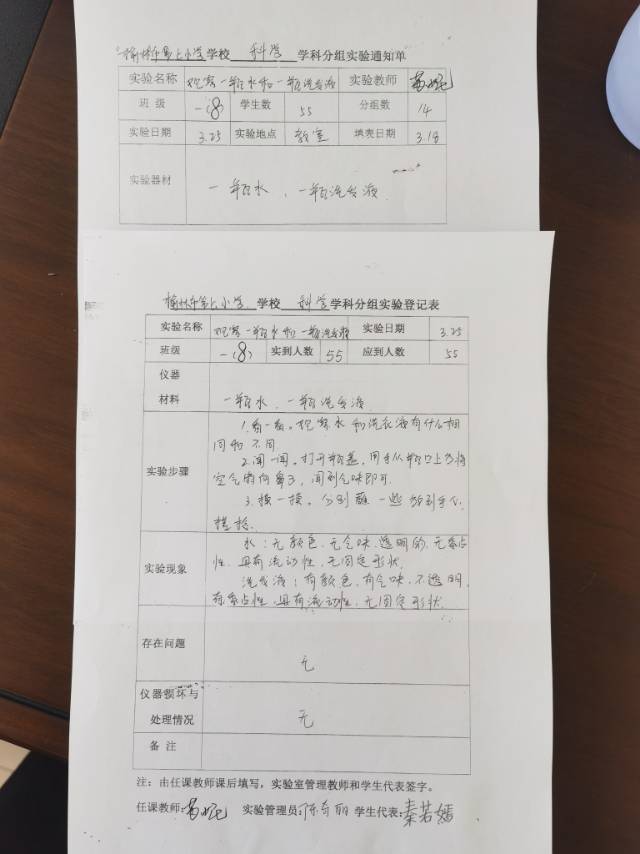 榆林市第七小学 学校 科学 学科分组实验通知单
实验名称 观察一瓶水和一瓶洗发液 实验教师
班 级 一(8) 学生数 55 分组数 14
实验日期 3.25 实验地点 教室 填表日期 3.18
实验器材 一瓶水、一瓶洗发液
榆林市第七小学 学校 科学 学科分组实验登记表
实验名称 观察一瓶水和一瓶洗发液 实验日期 3.25
班级 一(8) 实到人数 55 应到人数 55
仪器
材料 一瓶水、一瓶洗发液
实验步骤
1.看一看。观察水和洗衣液有什么相
同和不同
2.闻一闻。打开瓶盖,用手从瓶口上方将
空气扇向鼻子,闻到气味即可.
3.摸一摸。分别蘸一些 手心
实验现象
水:无颜色、无气味、透明的、无黏
性、具有流动性、无固定形状.
洗发液:有颜色、有气味、不透明、
有黏性、具有流动性、无固定形状.
存在问题 无
仪器损坏与
处理情况 无
备 注
注:由任课教师课后填写,实验室管理教师和学生代表签字。
任课教师: 实验管理员:陈奇丽 学生代表:秦若嫱